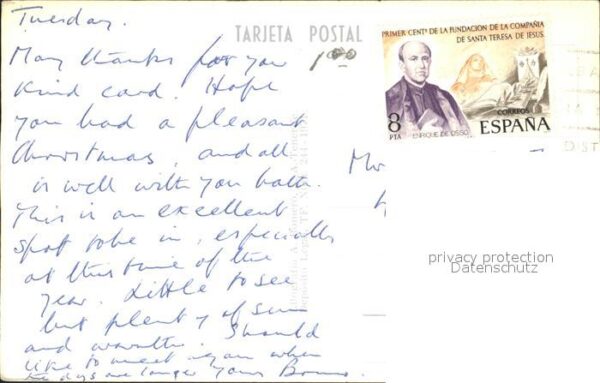 Tuesday.
Many thanks for you
kind card. Hope
you had a pleasant
Christmas, and all
is well with you both.
This is an excellent
spot to be in, especially
at this time of the
year. Little to see
but plenty of sun
and warmth. Should
like to meet again when
the days are longer Yours
TARJETA POSTAL
100
PRIMER CENTº DE LA FUNDACION DE LA COMPAÑIA
DE SANTA TERESA DE JESUS.
CORREOS
8 PTA
ENRIQUE DE OSSO
ESPAÑA
privacy protection
Datenschutz